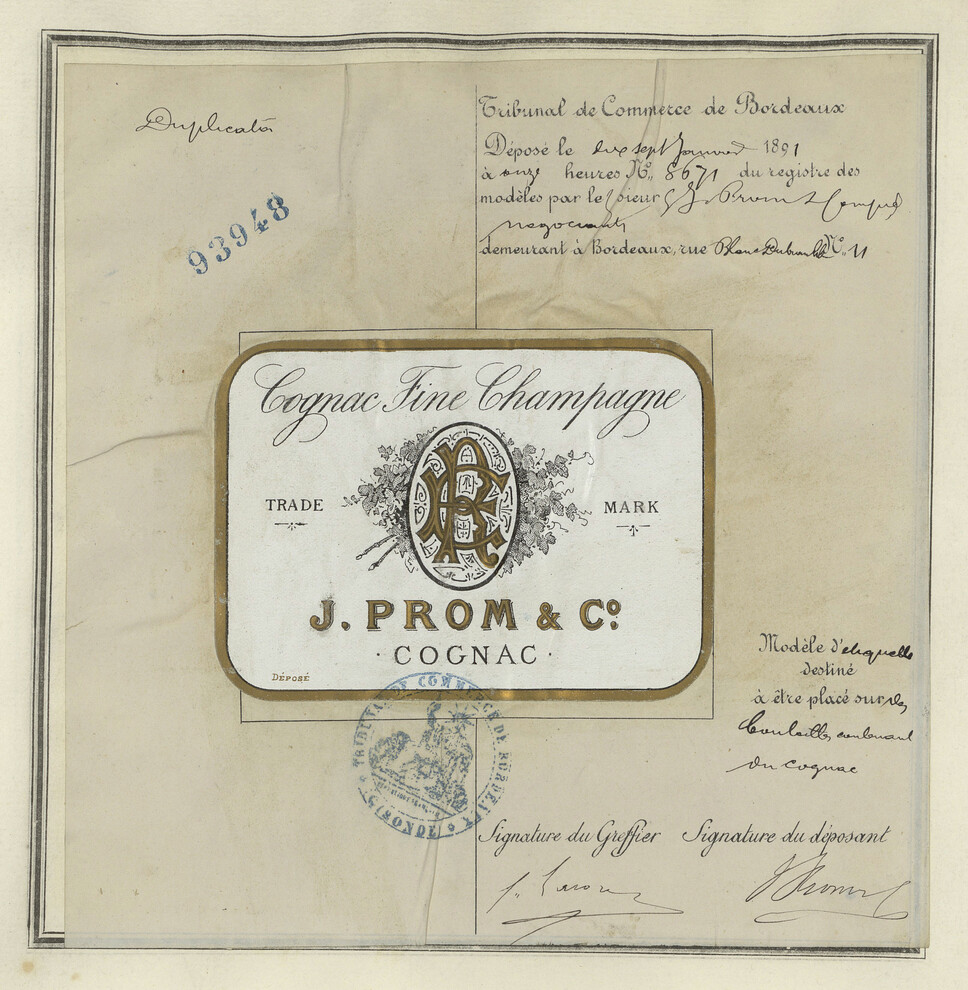 Duplicata
93948
Tribunal de Commerce de Bordeaux
Déposé le dix sept Janvier 1891
à onze heures No. 8671 du registre des
modèles par le sieur J. Prom &
negociants
demeurant à Bordeaux, rue No. 11
Cognac Fine Champagne
TRADE MARK
J. PROM & Co.
· COGNAC ·
DÉPOSÉ
TRIBUNAL DE COMMERCE DE BORDEAUX
(GIRONDE)
Modèle d'etiquette
destiné
à être placé sur des
bouteilles contenant
du cognac
Signature du Greffier Signature du déposant
J Prom